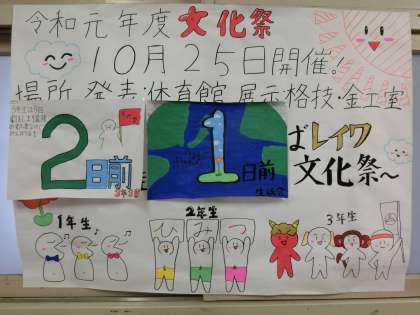 令和元年度 文化祭
10月25日開催!
場所 発表:体育館 展示:格技・金工室
2日前
3年3組
1日前
生徒会
レイワ
文化祭～
1年生
2年生
ひみつ
3年生